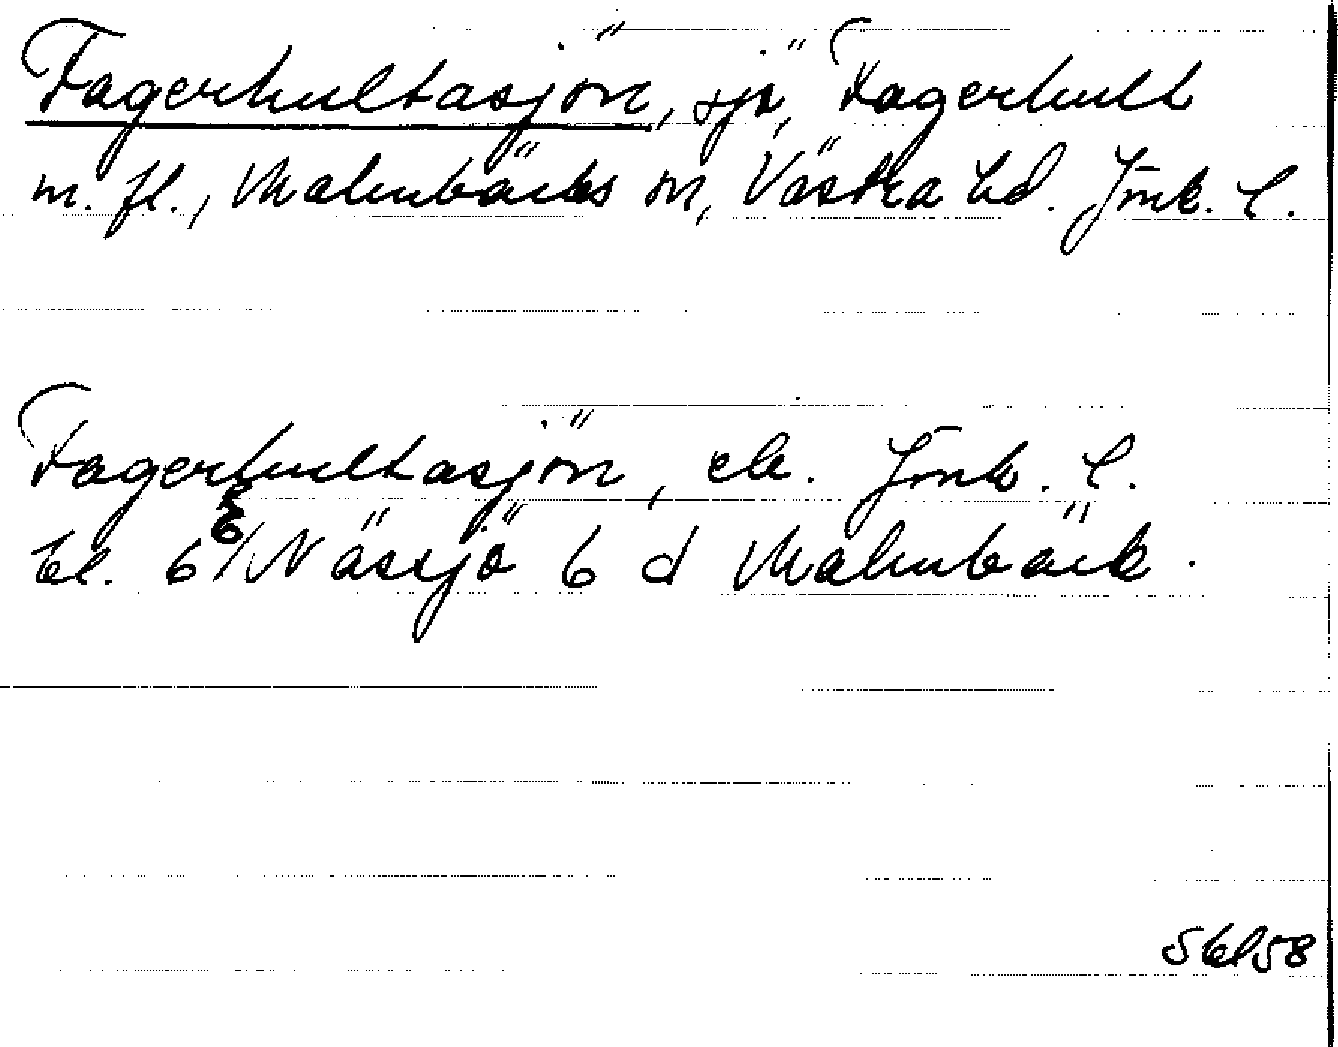 Fagerhultasjön, sjö, Fagerhult
m. fl., Malmbäcks sn, Västra hd. Jönk. l.
Fagerhultasjön, ek. Jönk. l.
bl. 6 Nässjö 6 d Malmbäck.